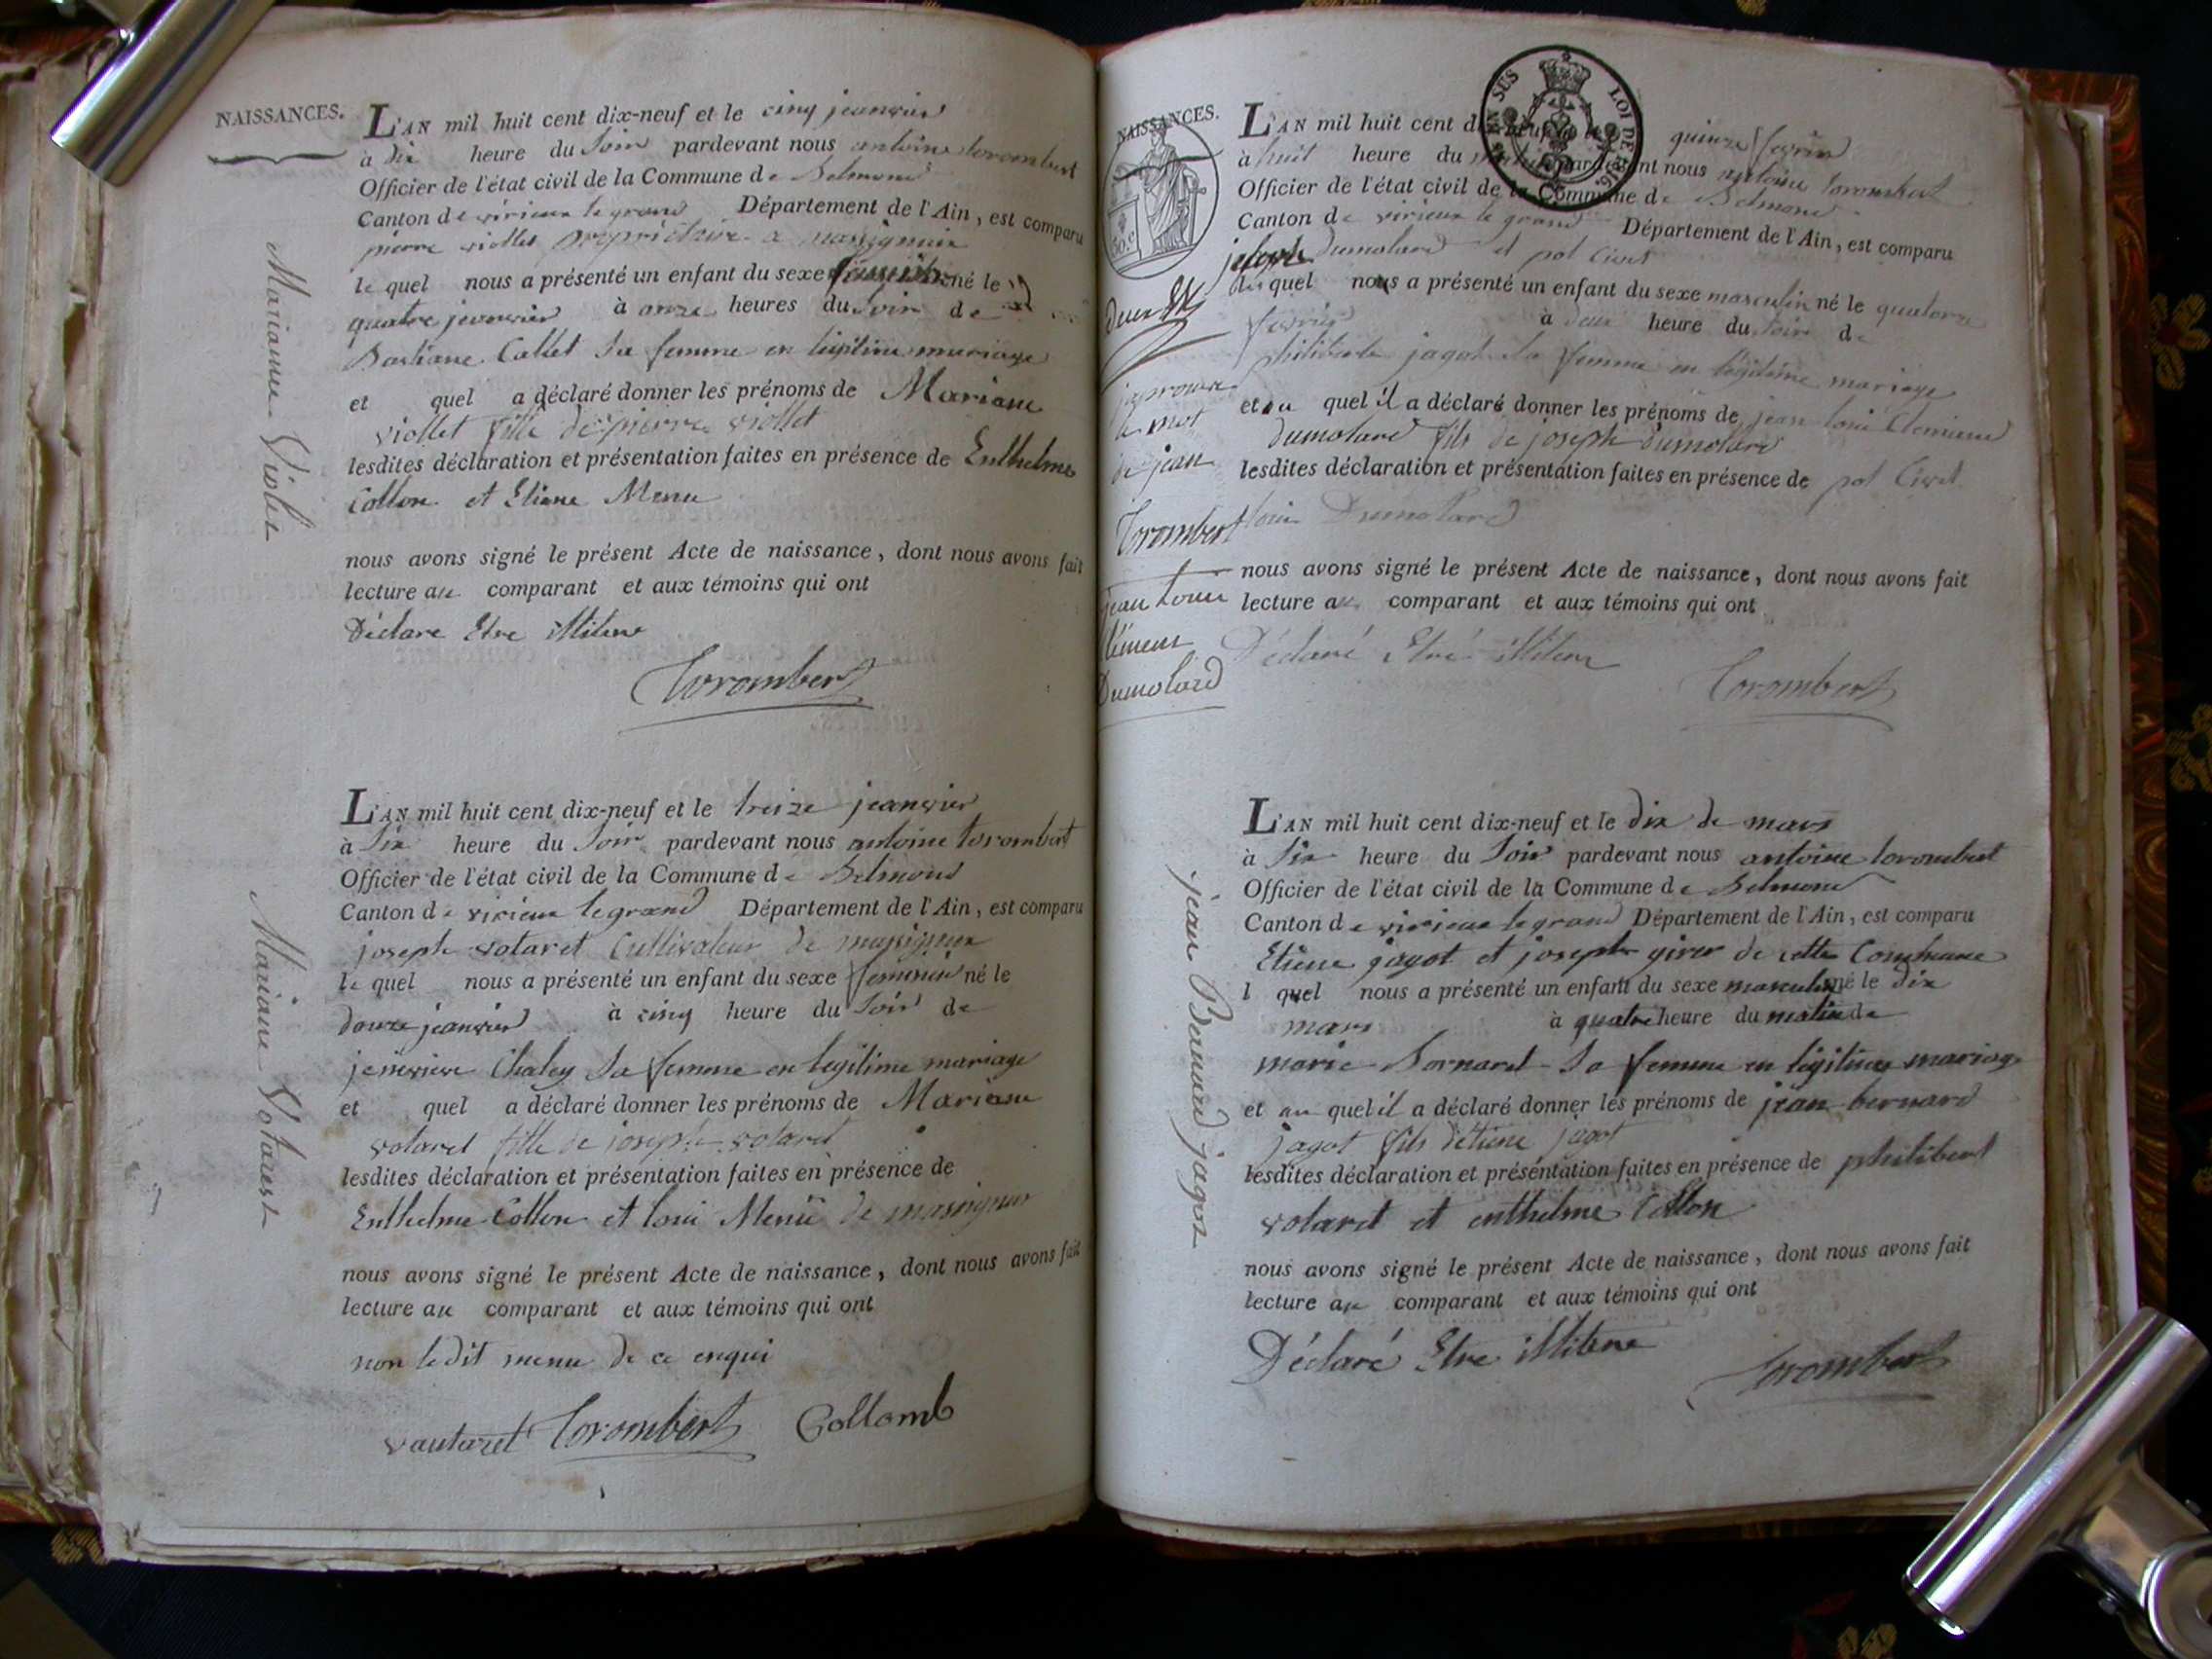 NAISSANCES.
L'AN mil huit cent dix-neuf et le cinq jeanvier
à six heure du soir pardevant nous antoine torombert
Officier de l'état civil de la Commune de Belmond
Canton de virieux le grand Département de l'Ain, est comparu
pierre viollet propriétaire a
le quel nous a présenté un enfant du sexe né le
quatre jeanvier à onze heures du soir de
Collet sa femme en legitime mariage
et quel a déclaré donner les prénoms de Mariane
viollet fille de pierre viollet
lesdites déclaration et présentation faites en présence de Enthelme
Collon et Etiene Menu
nous avons signé le présent Acte de naissance, dont nous avons fait
lecture au comparant et aux témoins qui ont
Déclare Etre illitere
Torombert
Marianne Violet
L'AN mil huit cent dix-neuf et le treize jeanvier
à six heure du soir pardevant nous antoine torombert
Officier de l'état civil de la Commune de Belmond
Canton de virieux le grand Département de l'Ain, est comparu
joseph votaret Cultivateur de
le quel nous a présenté un enfant du sexe feminin né le
douze jeanvier à cinq heure du soir de
Chaley sa femme en legitime mariage
et quel a déclaré donner les prénoms de Mariane
votaret fille de joseph votaret
lesdites déclaration et présentation faites en présence de
Enthelme Collon et loui Menu de
nous avons signé le présent Acte de naissance, dont nous avons fait
lecture au comparant et aux témoins qui ont
non ledit menu de ce enqui
vautaret Torombert Collomb
Mariane Votarest
NAISSANCES.
EN SUS LOI DE 1816.
50 c
L'AN mil huit cent dix-neuf et le quinze fevrier
à huit heure du matin pardevant nous antoine torombert
Officier de l'état civil de la Commune de Belmond
Canton de virieux le grand Département de l'Ain, est comparu
joseph Dumolard et pol Civet
quel nous a présenté un enfant du sexe masculin né le quatorze
fevrier à deux heure du soir de
philiberte jagot sa femme en légitime mariage
et au quel il a déclaré donner les prénoms de jean loui Clemient
dumolard fils de joseph dumolard
lesdites déclaration et présentation faites en présence de pol Civet
loui Dumolard
nous avons signé le présent Acte de naissance, dont nous avons fait
lecture au comparant et aux témoins qui ont
Déclaré Etre illitere
Torombert
japrouve
le mot
de jean
Torombert
jean Loui
Dumolard
L'AN mil huit cent dix-neuf et le dix de mars
à six heure du soir pardevant nous antoine torombert
Officier de l'état civil de la Commune de Belmond
Canton de virieux le grand Département de l'Ain, est comparu
Etiene jagot et joseph de cette Commune
l quel nous a présenté un enfant du sexe masculin né le dix
mars à quatre heure du matin de
marie Bornard sa femme en légitime mariage
et au quel il a déclaré donner les prénoms de jean bernard
jagot fils d'étiene jagot
lesdites déclaration et présentation faites en présence de philibert
votaret et enthelme Collon
nous avons signé le présent Acte de naissance, dont nous avons fait
lecture au comparant et aux témoins qui ont
Déclaré Etre illitere
Torombert
jean Bernard jagot